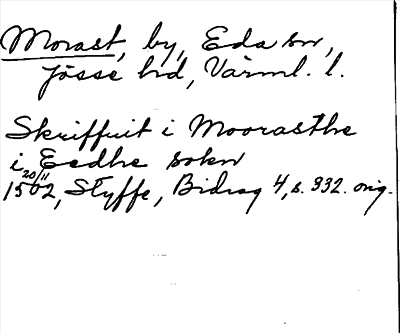 Morast, by, Eda sn,
Jösse hd, Värml. l.
Skriffuit i Moorasthe
i Eedhe sokn
20/11
1502, Styffe, Bidrag 4, s. 332. orig.